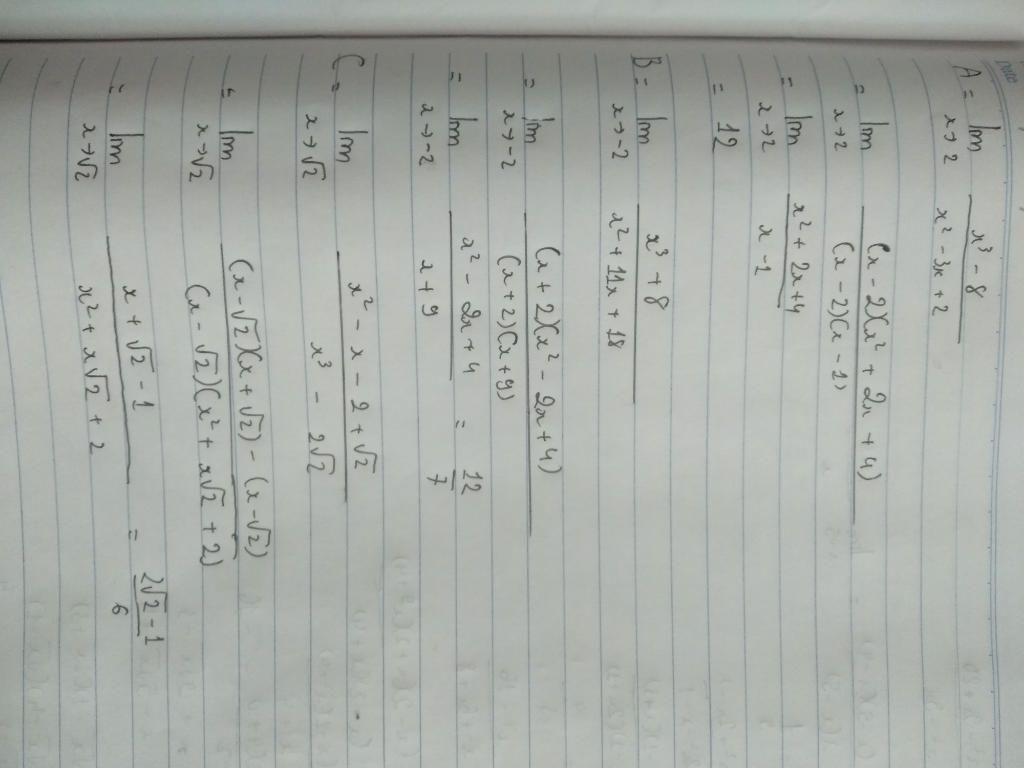 PAGE
A = lim x→2 (x³ - 8)/(x² - 3x + 2)
= lim x→2 (x - 2)(x² + 2x + 4)/(x - 2)(x - 1)
= lim x→2 (x² + 2x + 4)/(x - 1)
= 12
B = lim x→-2 (x³ + 8)/(x² + 11x + 18)
= lim x→-2 (x + 2)(x² - 2x + 4)/(x + 2)(x + 9)
= lim x→-2 (x² - 2x + 4)/(x + 9) = 12/7
C = lim x→√2 (x² - x - 2 + √2)/(x³ - 2√2)
= lim x→√2 ((x - √2)(x + √2) - (x - √2))/((x - √2)(x² + x√2 + 2))
= lim x→√2 (x + √2 - 1)/(x² + x√2 + 2) = (2√2 - 1)/6